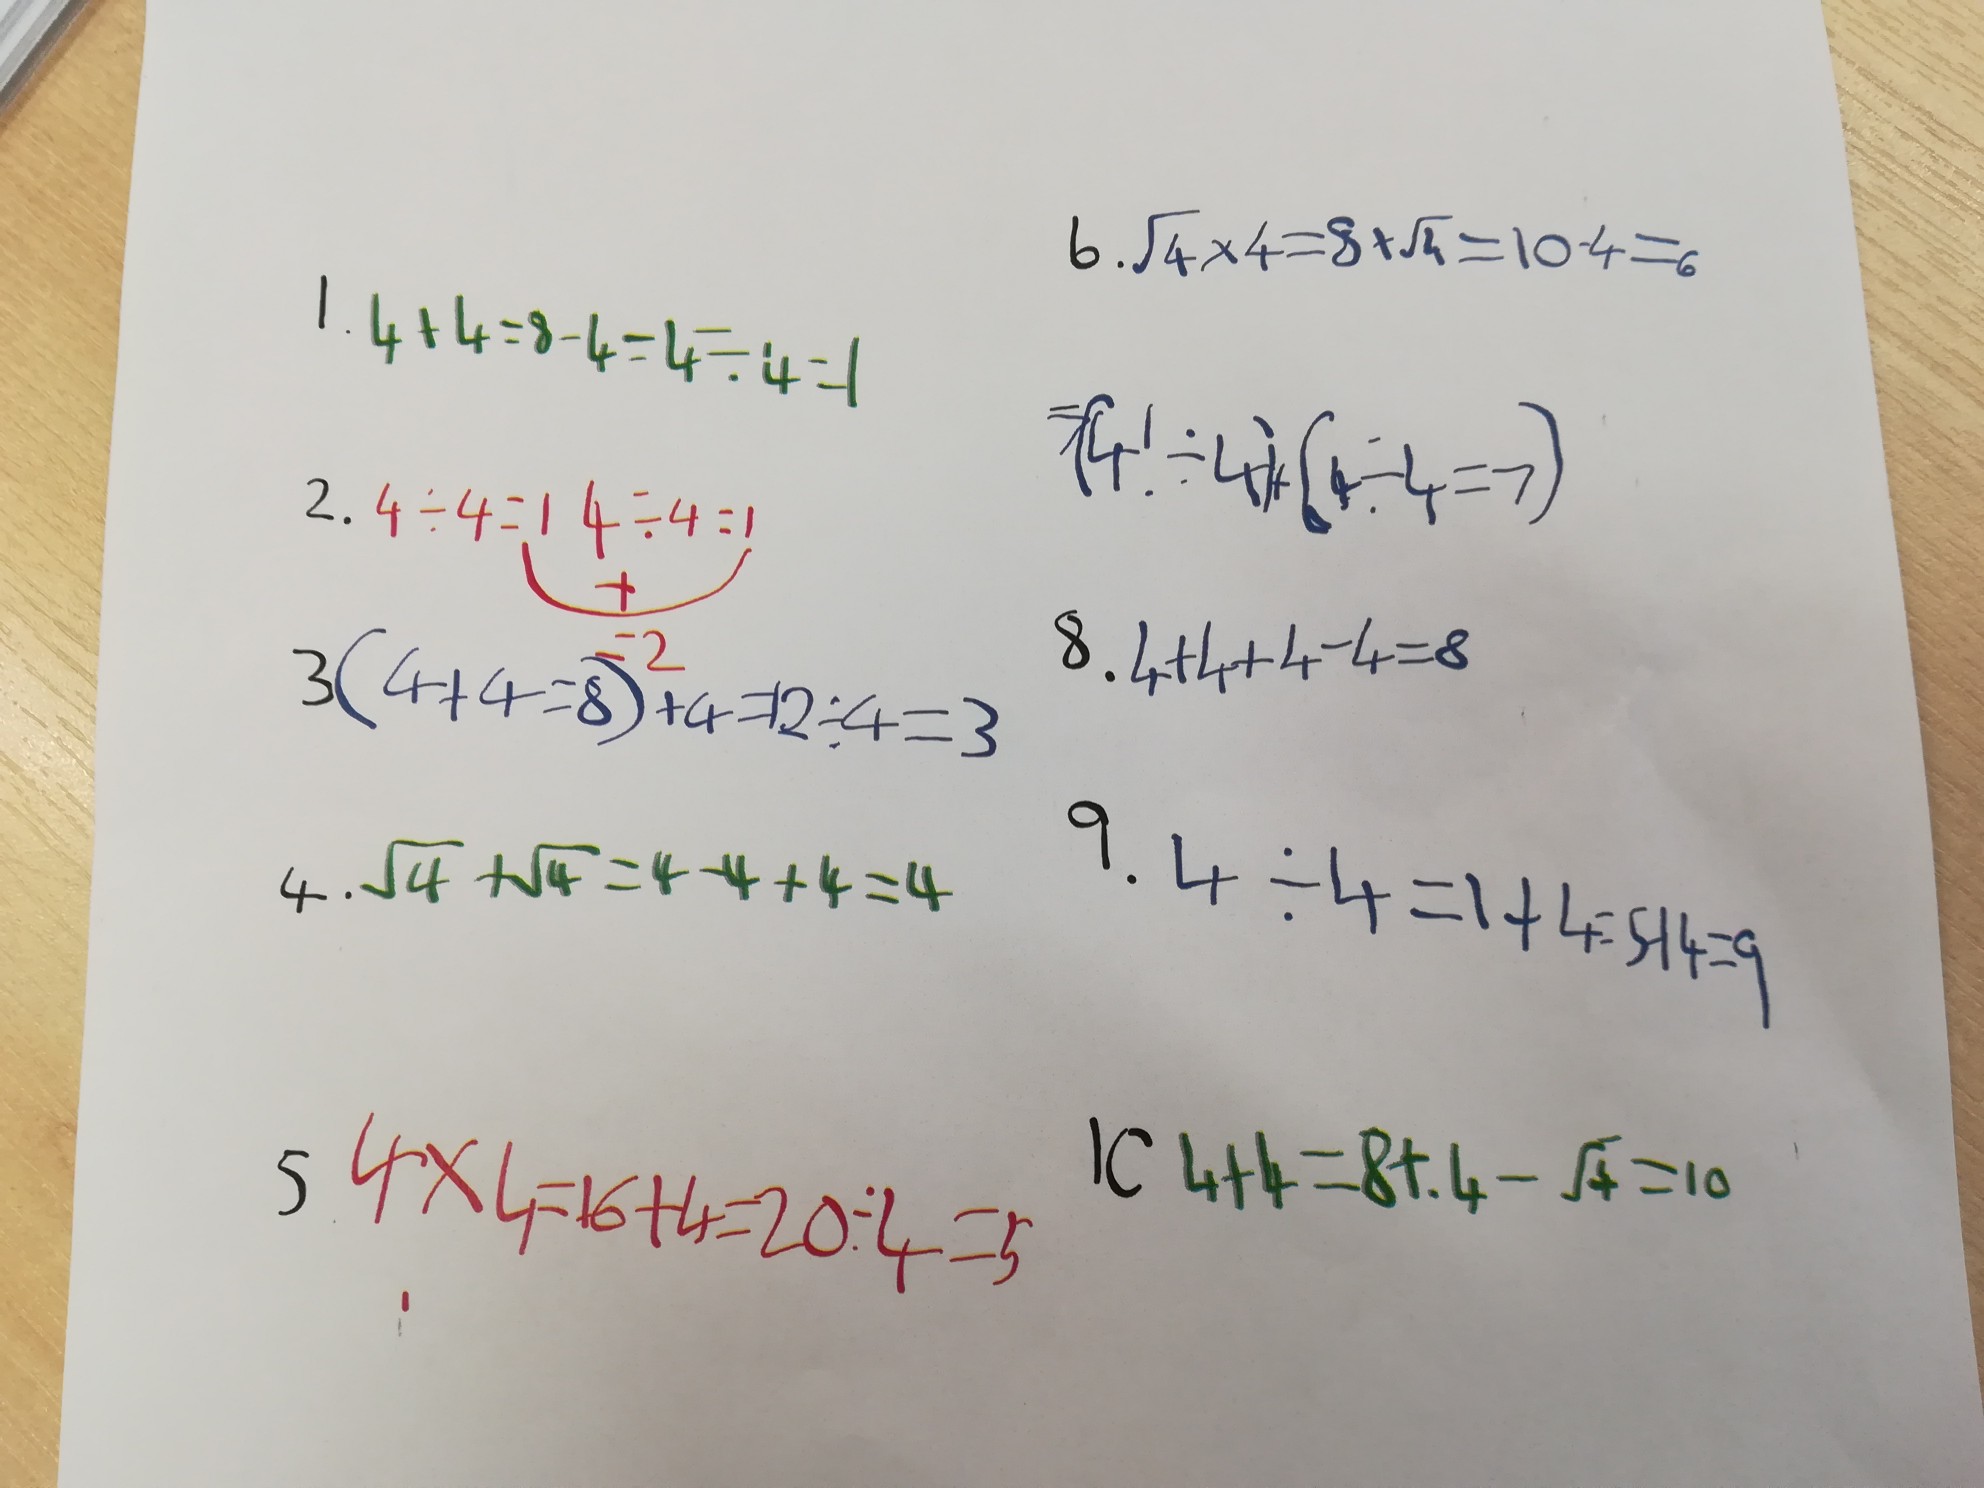 1. 4+4=8-4=4÷4=1
2. 4÷4=1 4÷4=1
+
=2
3(4+4=8)+4=12÷4=3
4. √4+√4=4-4+4=4
5 4×4=16+4=20÷4=5
6. √4×4=8+√4=10-4=6
=7(4!÷4)+(4÷4=7)
8. 4+4+4-4=8
9. 4÷4=1+4=5+4=9
10 4+4=8+.4-√4=10